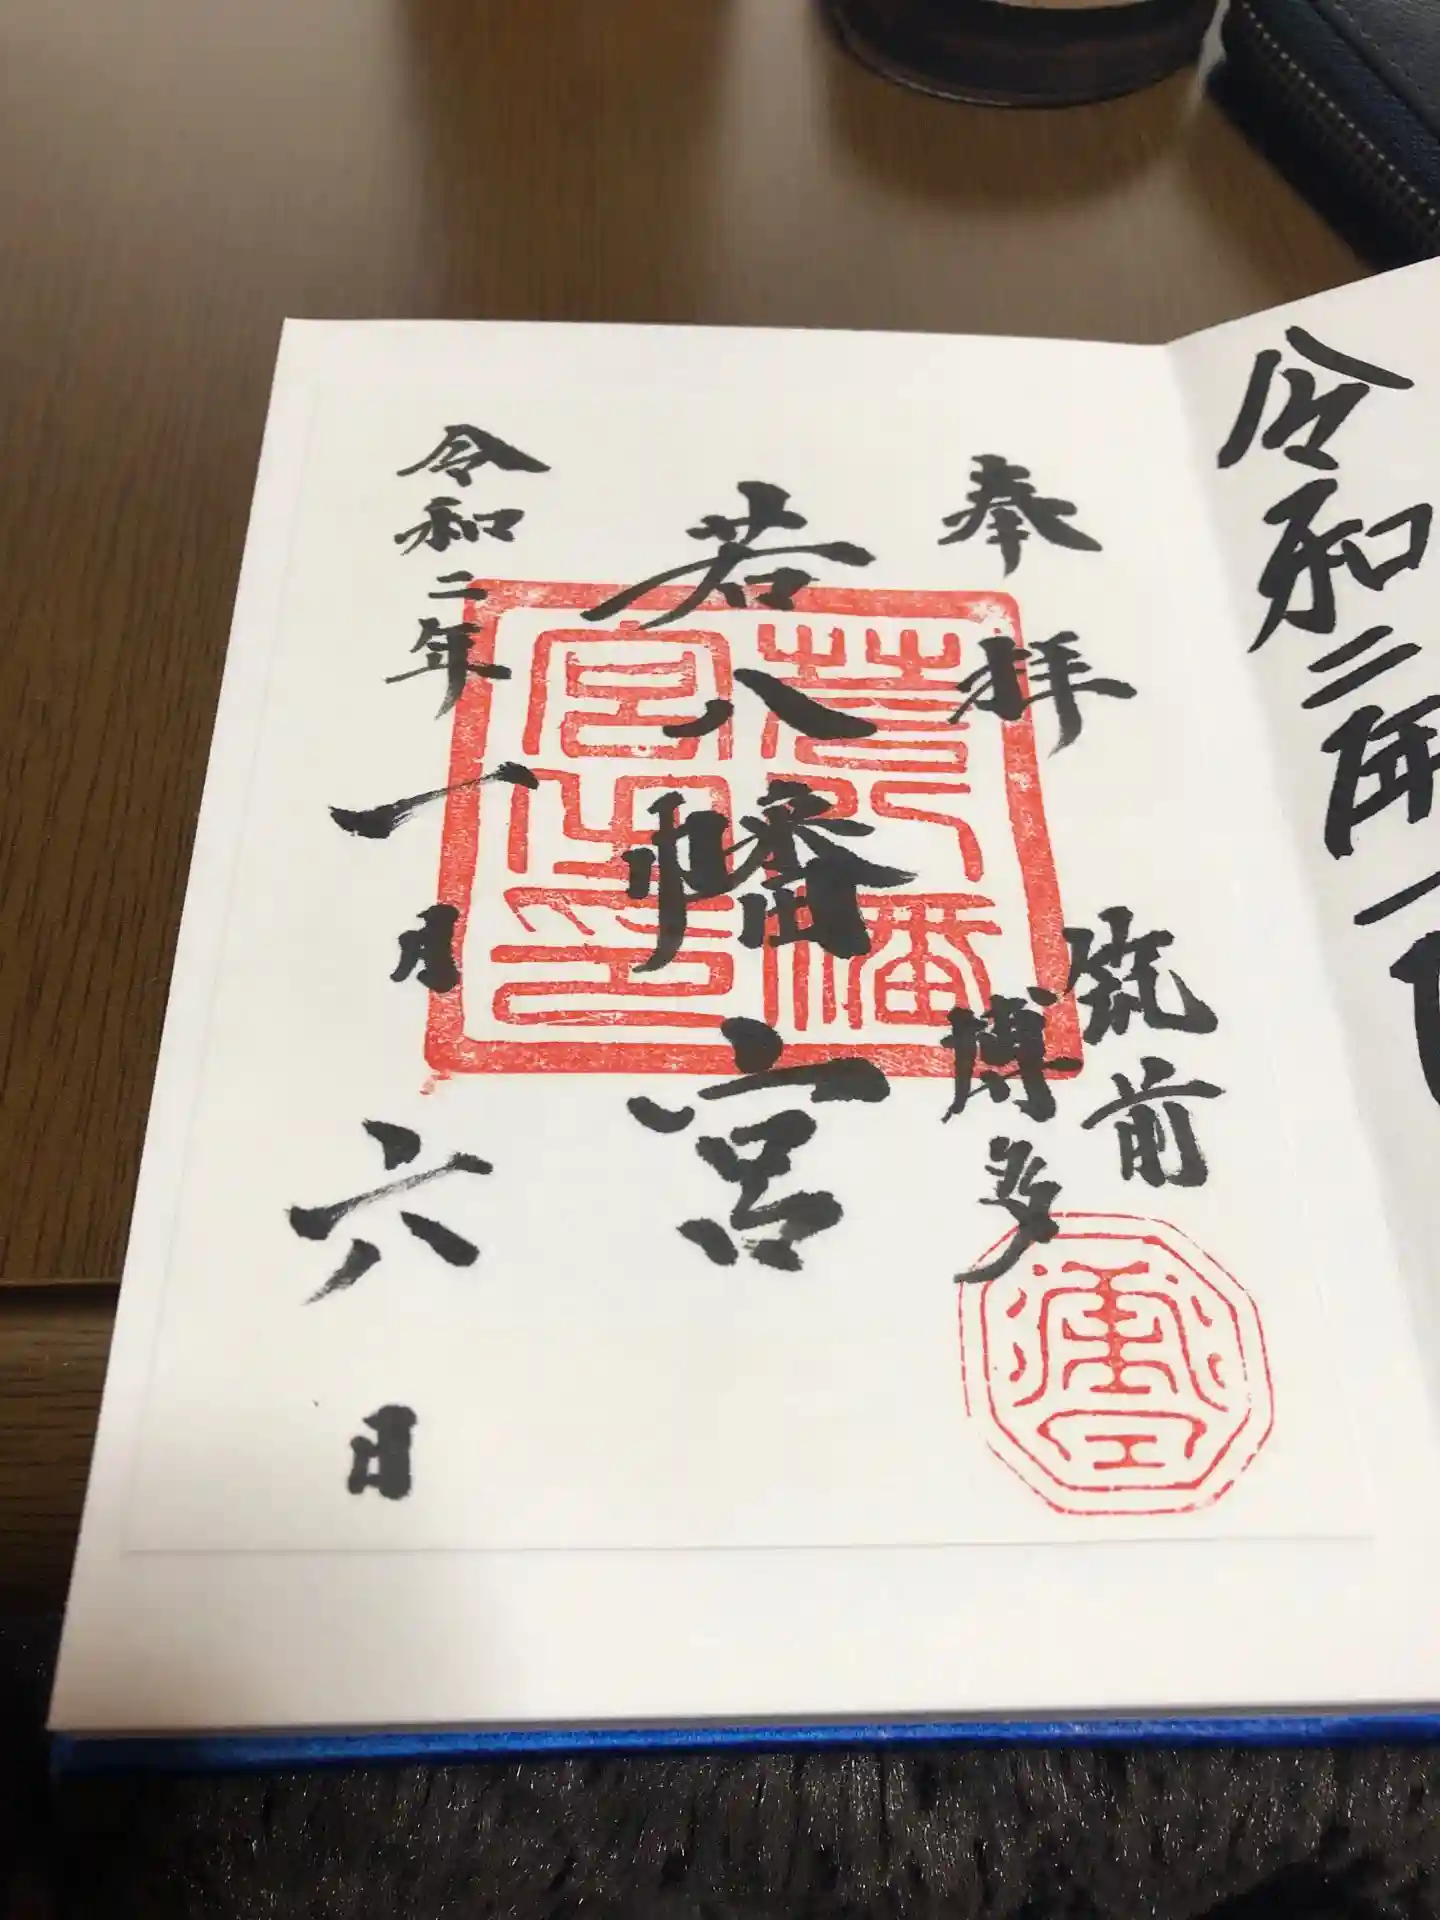 令和二年一
奉拝
筑前
博多
若八幡宮
若八幡
宮之印
令和二年一月六日